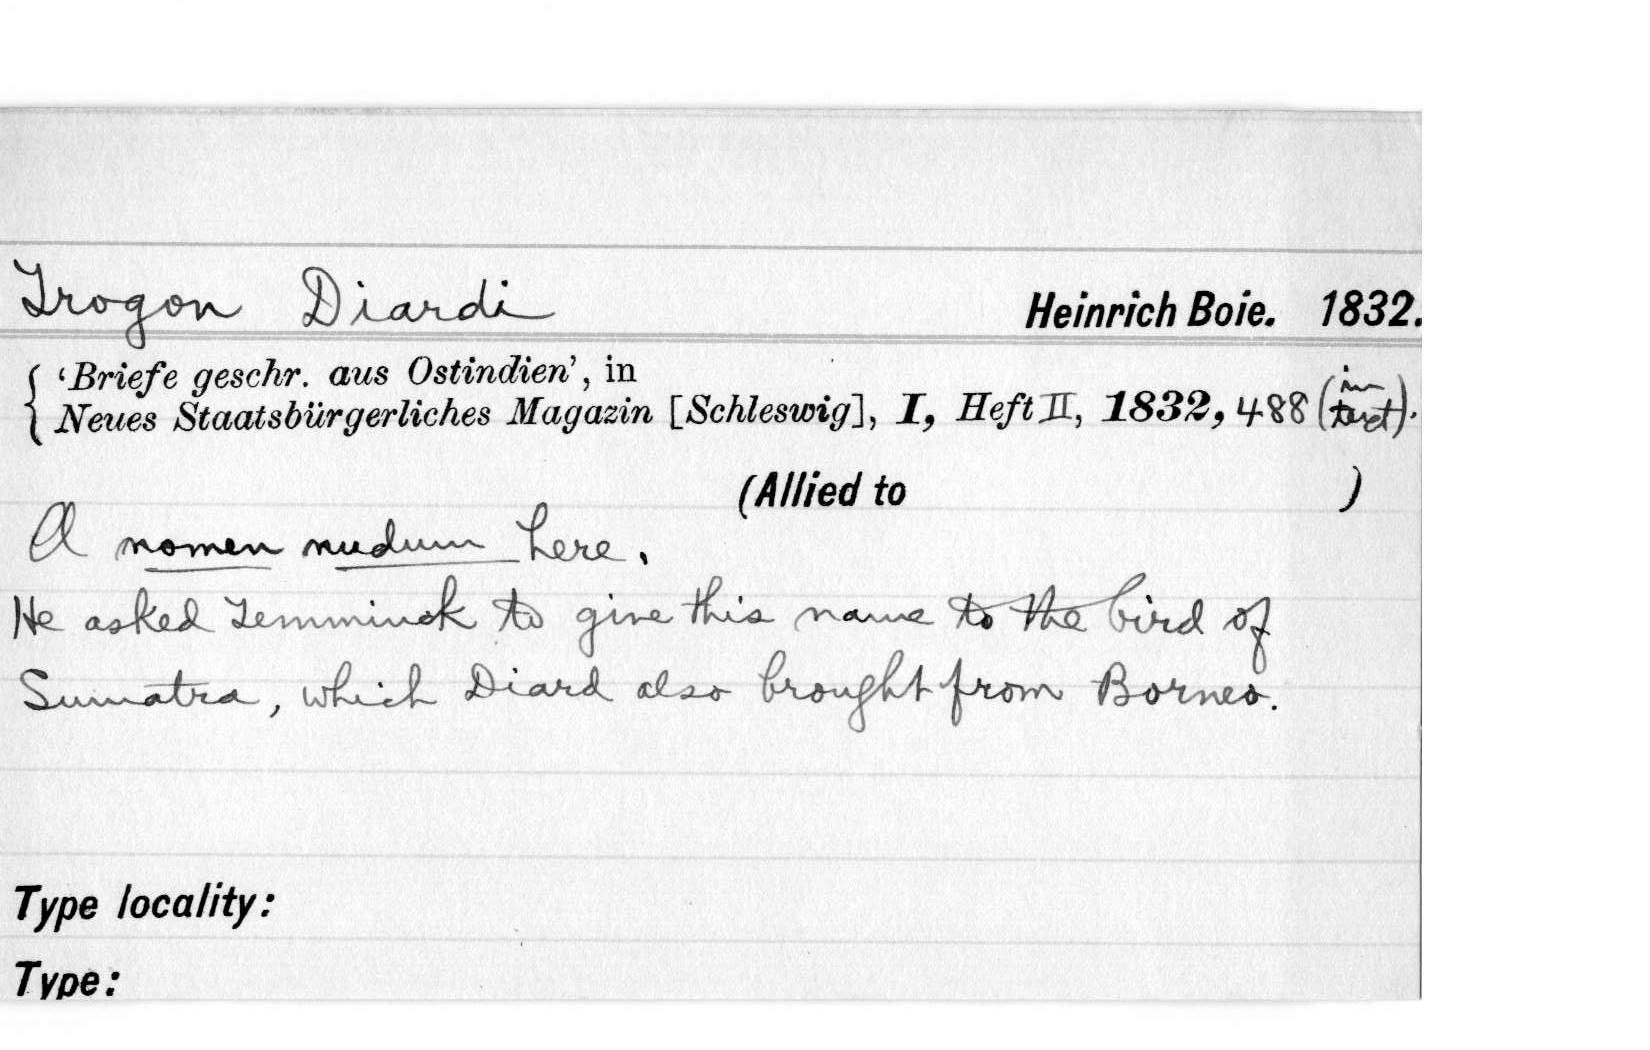 Trogon Diardi Heinrich Boie. 1832.
{ ‘Briefe geschr. aus Ostindien’, in
Neues Staatsbürgerliches Magazin [Schleswig], I, Heft II, 1832, 488 (in text).
(Allied to )
A nomen nudum here.
He asked Temminck to give this name to the bird of
Sumatra, which Diard also brought from Borneo.
Type locality:
Type: